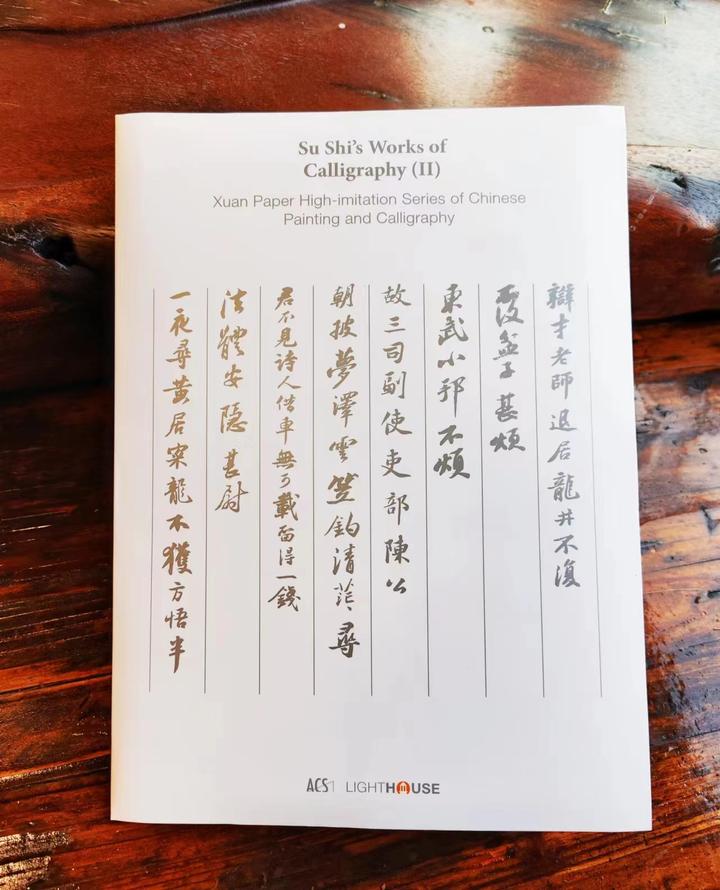 Su Shi's Works of
Calligraphy (II)
Xuan Paper High-imitation Series of Chinese
Painting and Calligraphy
辯才老師退居龍井不復
覆盆子甚煩
東武小邦不煩
故三司副使吏部陳公
朝披夢澤雲笠釣清茫尋
君不見詩人借車無可載留得一錢
法體安隱甚尉
一夜尋黃居寀龍不獲方悟半
ACS LIGHTHOUSE